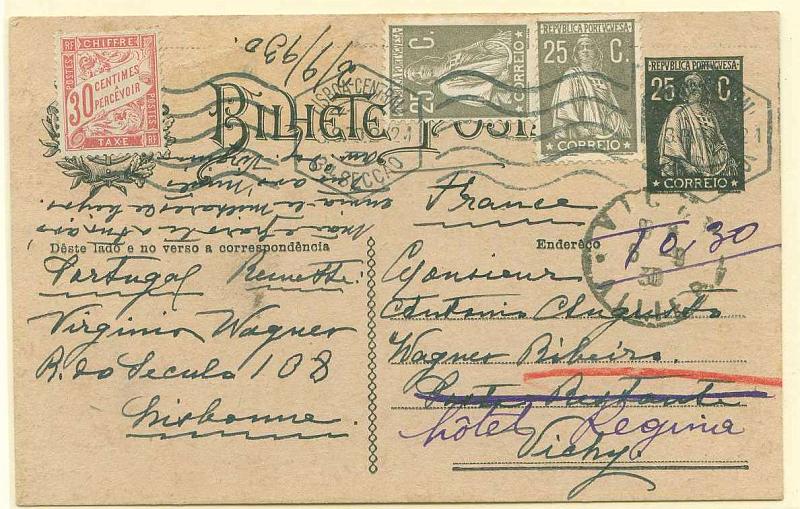 POSTES RF
CHIFFRE
30 CENTIMES
À PERCEVOIR
TAXE
6/9/930
25 C.
CORREIO
REPUBLICA PORTUGUESA
25 C.
CORREIO
REPUBLICA PORTUGUESA
25 C.
CORREIO
LISBOA CENTRAL
3ª SECCAO
BILHETE POSTAL
Dêste lado e no verso a correspondência
Portugal Remette:
Virginio Wagner
R. do Seculo 108
Lisbonne
France
Enderêço
T 0,30
VICHY
ALLIER
Monsieur
Antonio Augusto
Wagner Ribeiro.
Poste Restante
hôtel Regina
Vichy.